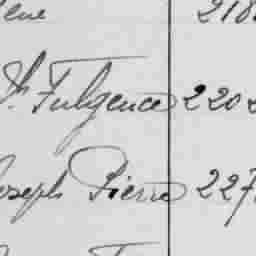 ene 218
St. Fulgence 220
Joseph Pierre 227